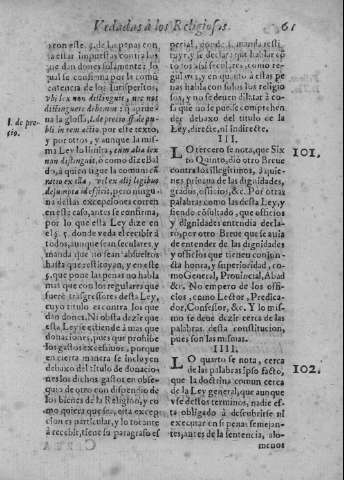 Vedadas à los Religiosos. 61
eron este §. de las penas con,
a estar impuestas contra los
que dan donec solamente: lo
qual se confirma por la comũ
sentencia de los Jurisperitos,
Vbi lex non distinguit, nec nos
distinguere debemus: q̃ aprue
na la glossa, l. de precio ff. de pu-
l. de pre-
cio.
bli in rem actio. por este texto,
y por otros, y aunque la mis-
ma Ley lo limita, cum alia lex
non distinguit, ò como dize Bal
do, à quien sigue la comun:
ratio ex illa, vel ex alij legibus
desumpta id efficit, pero ningu
na destas excepciones corren
en este caso, antes se confirma,
por lo que esta Ley dize en
el §. 5. donde veda el recibir à
todos, aunque sean seculares, y
manda que no sean absueltos
hasta que restituyan, y en este
§. que pone las penas no habla
mas que con los regulares que
fuerẽ trasgressores desta Ley,
cuyo titulo es contra los que
dan dones. Ni obsta dezir que
esta Ley se estiende à mas que
donaciones, pues que prohibe
los gastos excessinos, porque
en cierta manera se incluyen
debaxo del titulo de donacio-
nes los dichos gastos en obse-
quio de otro con dispendio de
los bienes de la Religion, y co
mo quiera que sea, esta excep
cion es particular, y lo tocante
à recebir, tiene su paragrafo es
pecial, donde
tuyr, y se declara que hablan cõ
todos assi seculares, como reg
lares, y en quanto à estas pe
nas habla con solos los religio
sos, y no se deuen dilatar à co-
sa que no se puede comprehen
der debaxo del titulo de la
Ley, directe, ni indirecte.
III.
LO tercero se nota, que Six 101.
to Quinto, dio otro Breue
contra illegitimos, à quie-
nes priuaua de las dignidades,
grados, oficios, &c. Por otras
palabras como las desta Ley, y
siendo cõsultado, que officios
y dignidades entendia decla-
rò, por otro Breue que se auia
de entender de las dignidades
y officios que tienen conjun-
cta honra, y superioridad, co-
mo General, Prouincial, Abad
&c. No empero de los offi-
cios, como Lector, Predica-
dor, Confessor, &c. Y lo mis-
mo se deue dezir cerca de las
palabras desta constitucion,
pues son las mismas.
IIII.
LO quarto se nota, cerca 102.
de las palabras ipso facto,
que la doctrina comun cerca
de la Ley general, que aunque
vse destos terminos, nadie es-
ta obligado à descubrirse ni
executar en si penas semejan-
tes, antes de la sentencia, alo-
menos